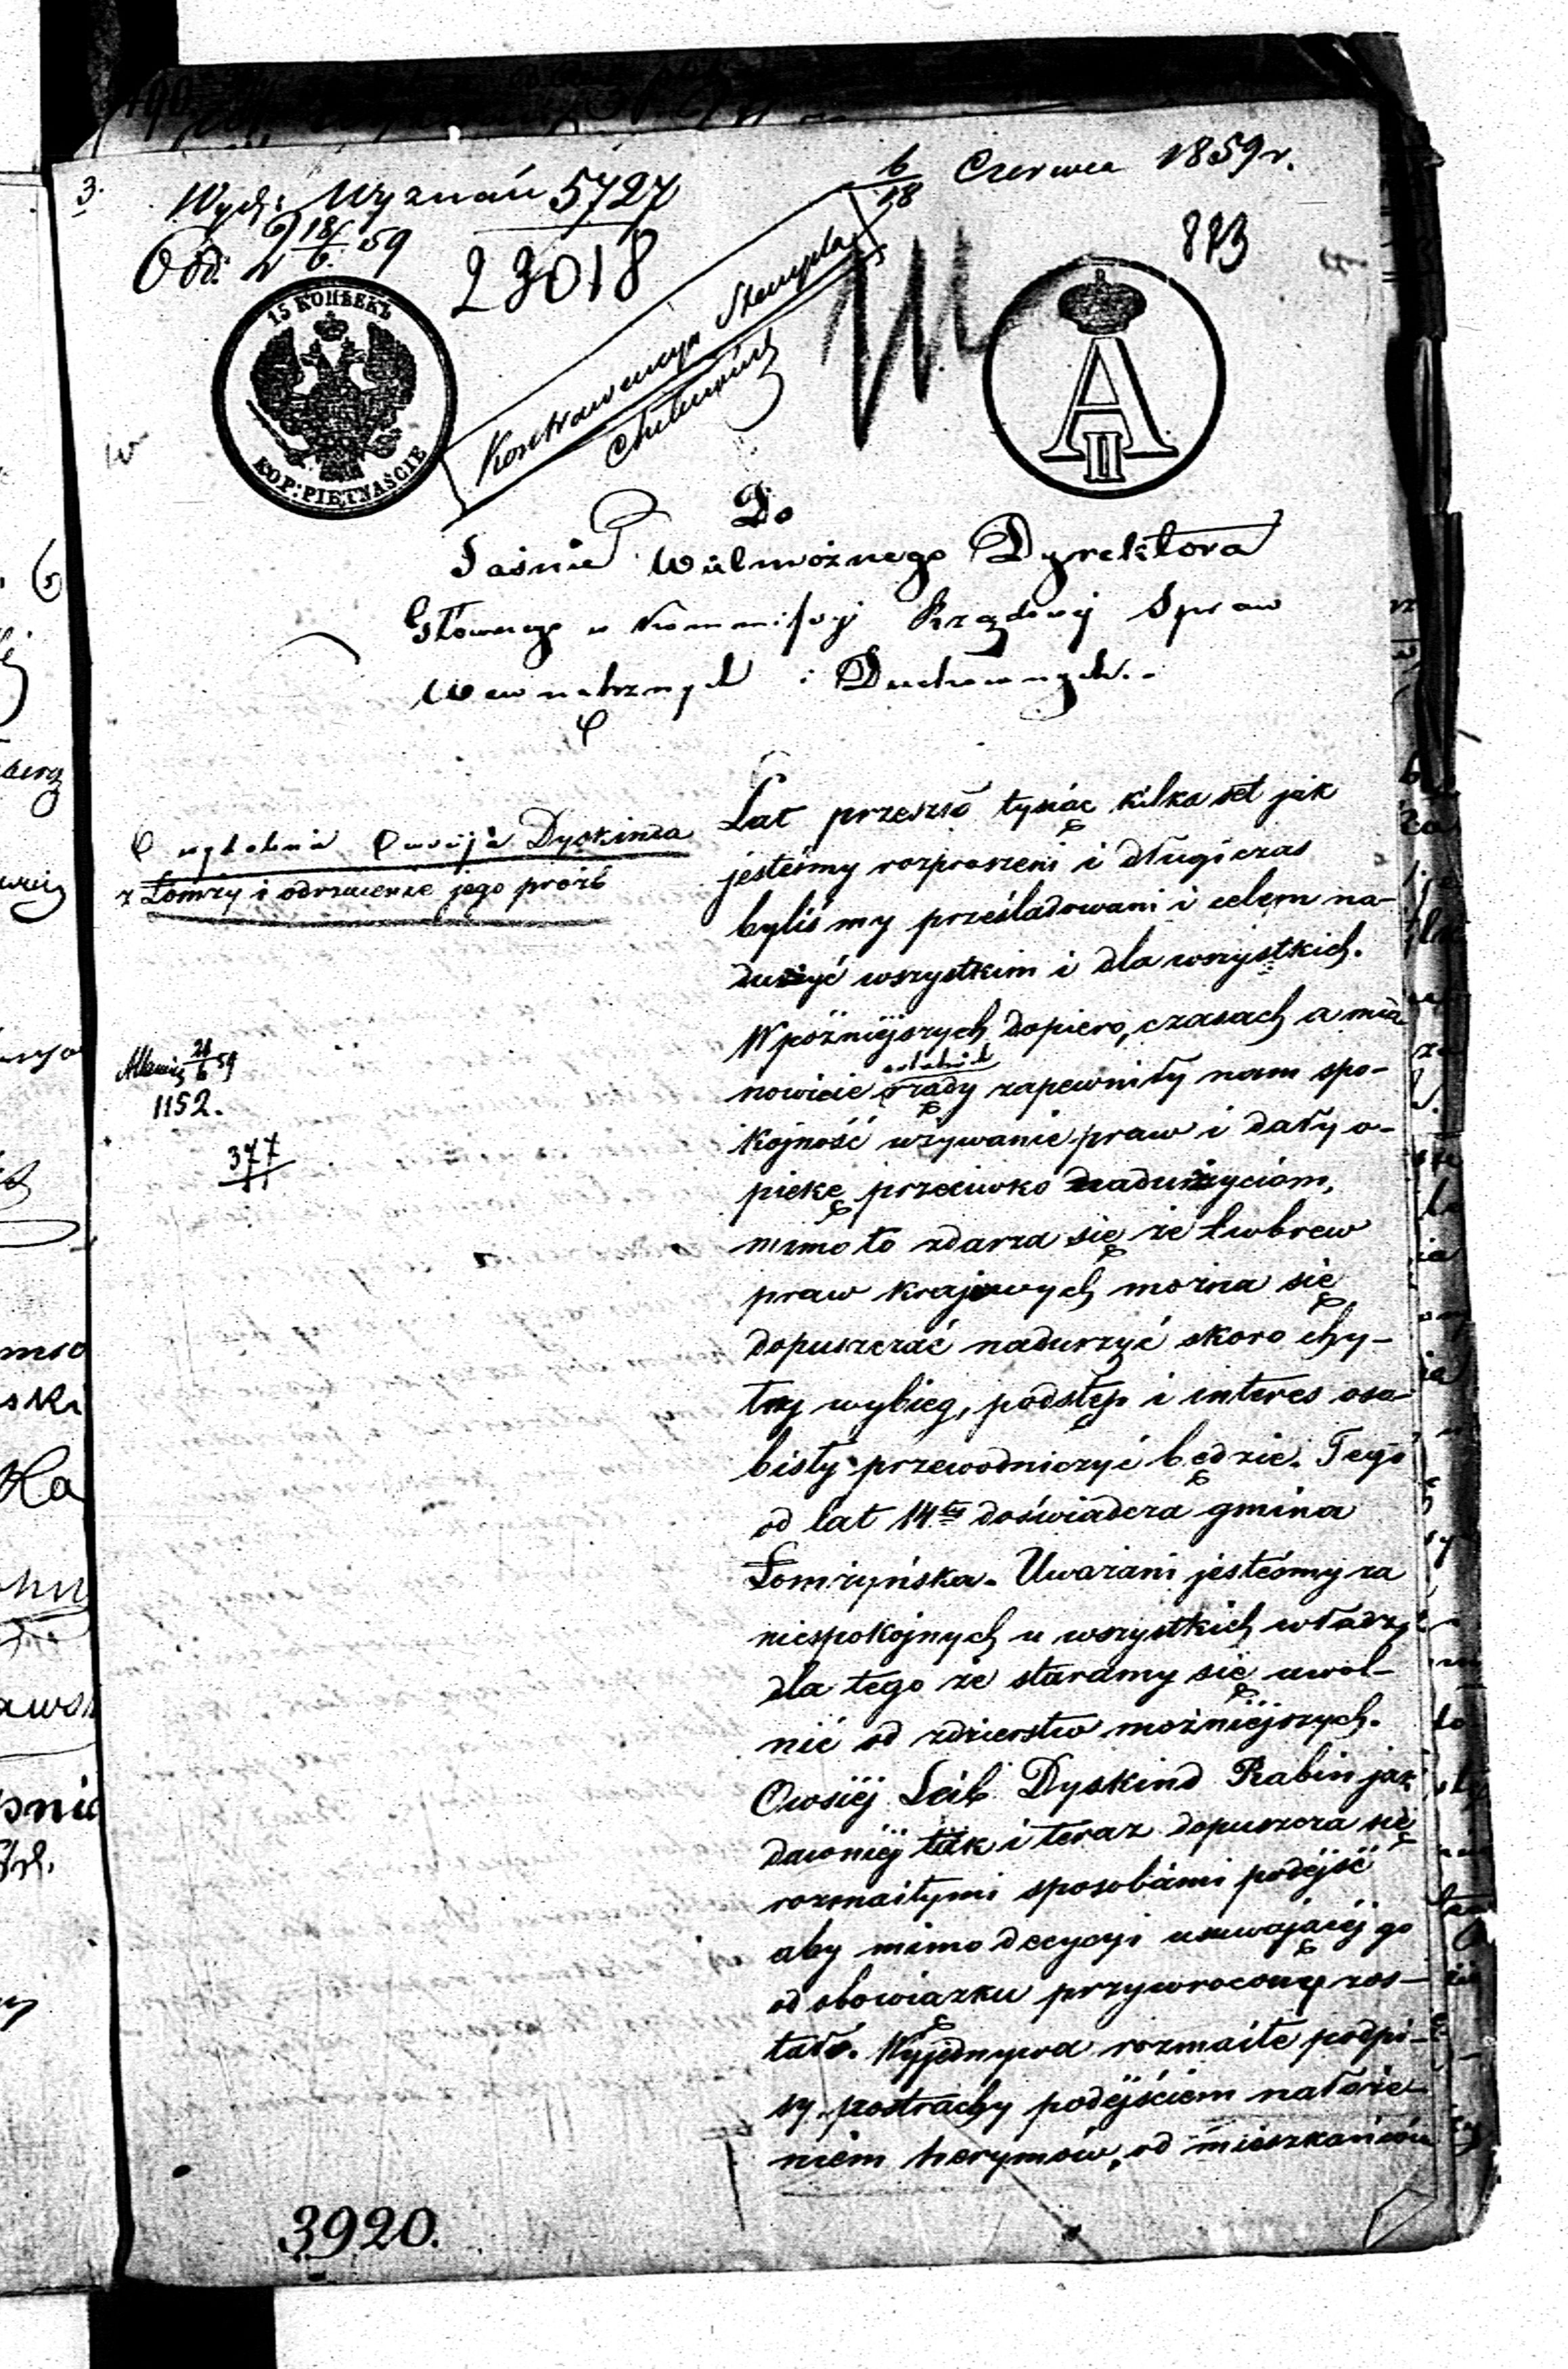 3.
Wydz: Wyznań 5727
6/18 Czerwca 1859 r.
Od: 2 18/6 59
23018
873
Kontrawencya Stempla
15 КОПѢЕКЪ
KOP: PIĘTNAŚCIE
A II
Do
Jaśnie Wielmożnego Dyrektora
Głównego w Kommissyi Rządowej Spraw
Wewnętrznych i Duchownych.
O wydalenie Owsieja Dyskinda
z Łomży i odrzucenie jego próźb
Lat przeszło tysiąc kilka set jak
jesteśmy rozproszeni i długi czas
byliśmy prześladowani i celem na-
dużyć wszystkim i dla wszystkich.
W późniejszych dopiero, czasach a mia
nowicie ostatnich rządy zapewniły nam spo-
kojność używanie praw i dały o-
piekę przeciwko nadużyciom,
mimo to zdarza się że wbrew
praw krajowych można się
dopuszczać nadurzyć skoro chy-
try wybieg, podstęp i interes oso-
bisty przewodniczyć będzie. Tego
od lat 14tu doświadcza gmina
Łomżyńska. Uważani jesteśmy za
niespokojnych u wszystkich władz,
dla tego że staramy się uwol-
nić od zdzierstw możniejszych.
Owsiej Leib Dyskind Rabin jak
dawniej tak i teraz dopuszcza się
rozmaitymi sposobami podejść
aby mimo decyzyi usuwającej go
od obowiązku przywrocony zos-
tał. Wyjednywa rozmaite podpi-
sy postrachy podejściem nałoże-
niem herymów, od mieszkańców
24/6 59
1152.
377
3920.